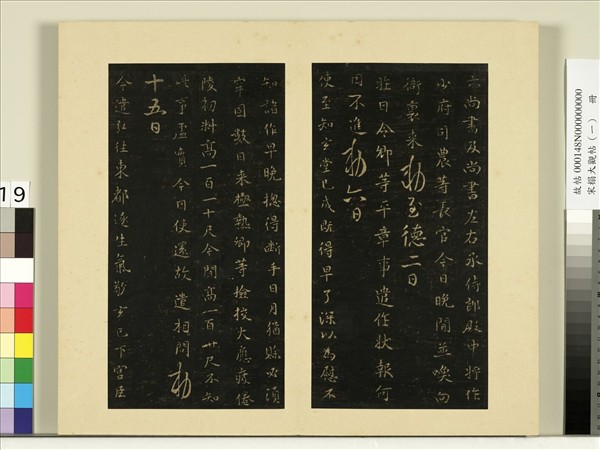 六尚書及尚書左右丞侍郎殿中將作
少府司農等長官今日晚間並喚向
衙裏來勅至德二日
在日今卿等平章事遣作狀報何
因不進勅六日
使至知玄堂已成既得早了深以為慰不
知諸作早晚摠得斷手日月猶賖必須
牢固數日來極熱卿等檢校大應疲倦
陵初料高一百一十尺今聞高一百卅尺不知
此事虛實今日使還故遣相問勅
十五日
今遣弘往東都
生氣
玄已下宮臣
故帖000148N000000000
宋搨大觀帖(一) 冊
19